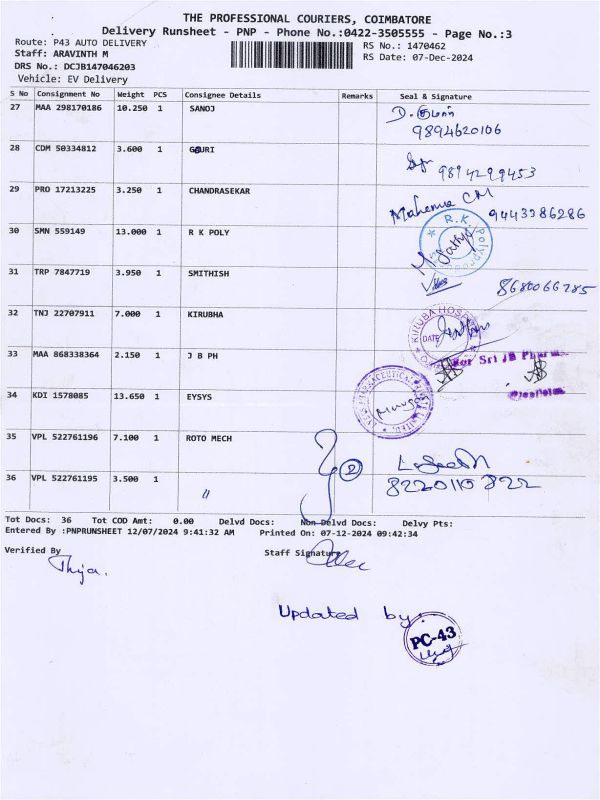 THE PROFESSIONAL COURIERS, COIMBATORE
Delivery Runsheet - PNP - Phone No.:0422-3505555 - Page No.:3
Route: P43 AUTO DELIVERY RS No.: 1470462
Staff: ARAVINTH M RS Date: 07-Dec-2024
DRS No.: DCJB147046203
Vehicle: EV Delivery
S No Consignment No Weight PCS Consignee Details Remarks Seal & Signature
27 MAA 298170186 10.250 1 SANOJ D. குமார்
9894620106
28 CDM 50334812 3.600 1 GOURI
9894299453
29 PRO 17213225 3.250 1 CHANDRASEKAR
9443386286
30 SMN 559149 13.000 1 R K POLY R.K. Polypro
31 TRP 7847719 3.950 1 SMITHISH 8680066785
32 TNJ 22707911 7.000 1 KIRUBHA KIRUBA HOSP
DATE
33 MAA 868338364 2.150 1 J B PH For Sri JB Pharma
34 KDI 1578085 13.650 1 EYSYS
35 VPL 522761196 7.100 1 ROTO MECH
36 VPL 522761195 3.500 1 〃 8220110822
Tot Docs: 36 Tot COD Amt: 0.00 Delvd Docs: Non Delvd Docs: Delvy Pts:
Entered By :PNPRUNSHEET 12/07/2024 9:41:32 AM Printed On: 07-12-2024 09:42:34
Verified By Staff Signature
Updated by:
PC-43